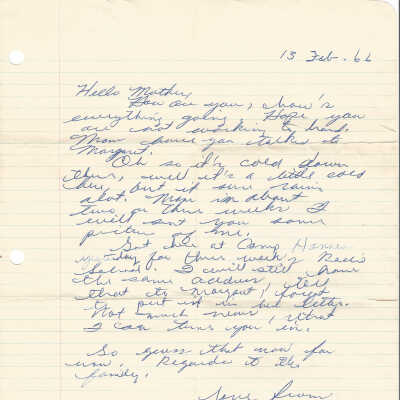 13 Feb. 66
Hello Mother,
How are you, how's
everything going. Hope you
are not working to hard.
Mom have you talked to
Margaret.
Oh so it's cold down
there, well it's a little cold
here, but it sure rains
alot. Mom in about
two or three weeks I
will sent you some
picture of me.
Got here at Camp Hansen
for three weeks
School. I will still have
the same address, tell
that to Margaret, forgot
to put it in her letter.
Not much news, that
I can turn you in.
So guess that now for
now. Regards to the
family.
Love from